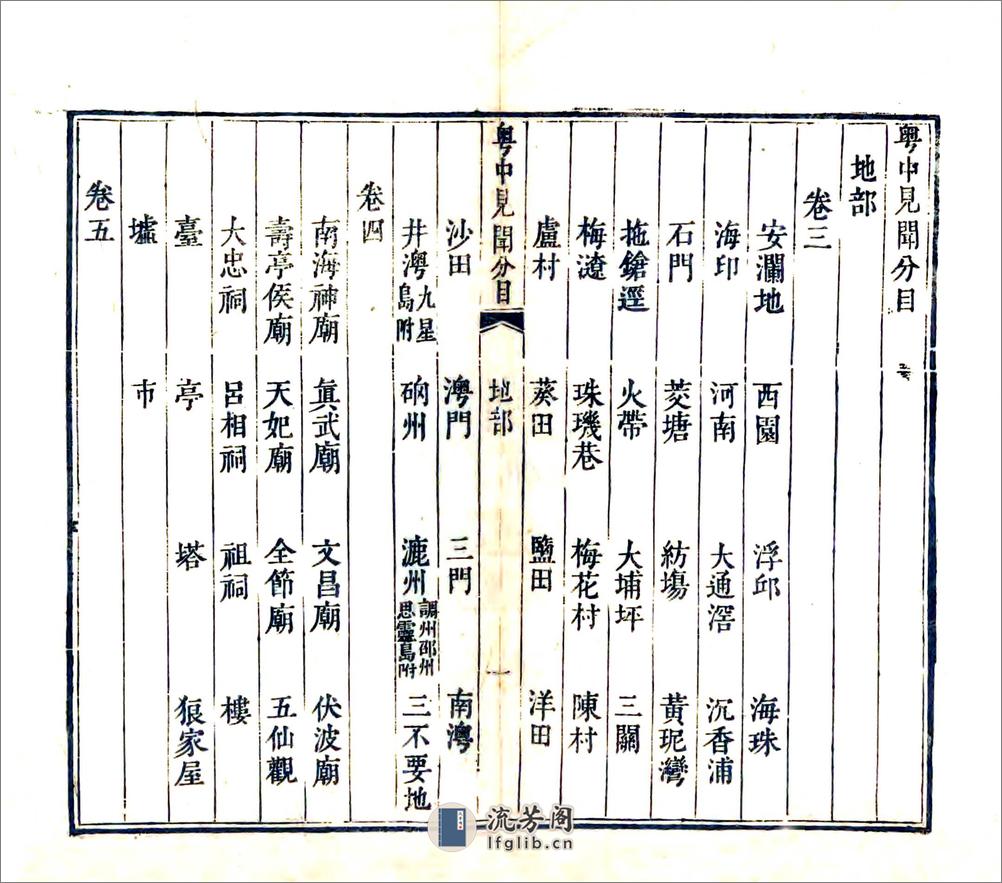 粵中見聞分目
地部
卷三
安瀾地 西園 浮邱 海珠
海印 河南 大通滘 沉香浦
石門 茭塘 紡塲 黃坭灣
拖鎗逕 火帶 大埔坪 三關
梅㵳 珠璣巷 梅花村 陳村
盧村 葵田 鹽田 洋田
粵中見聞分目 地部 一
沙田 澚門 三門 南澚
井澚 九星島附 硇州 漉州 調州邵州思靈島附 三不要地
卷四
南海神廟 眞武廟 文昌廟 伏波廟
壽亭侯廟 天妃廟 全節廟 五仙觀
大忠祠 呂相祠 祖祠 樓
臺 亭 塔 狼家屋
墟 市
卷五
流芳阁
lfglib.cn